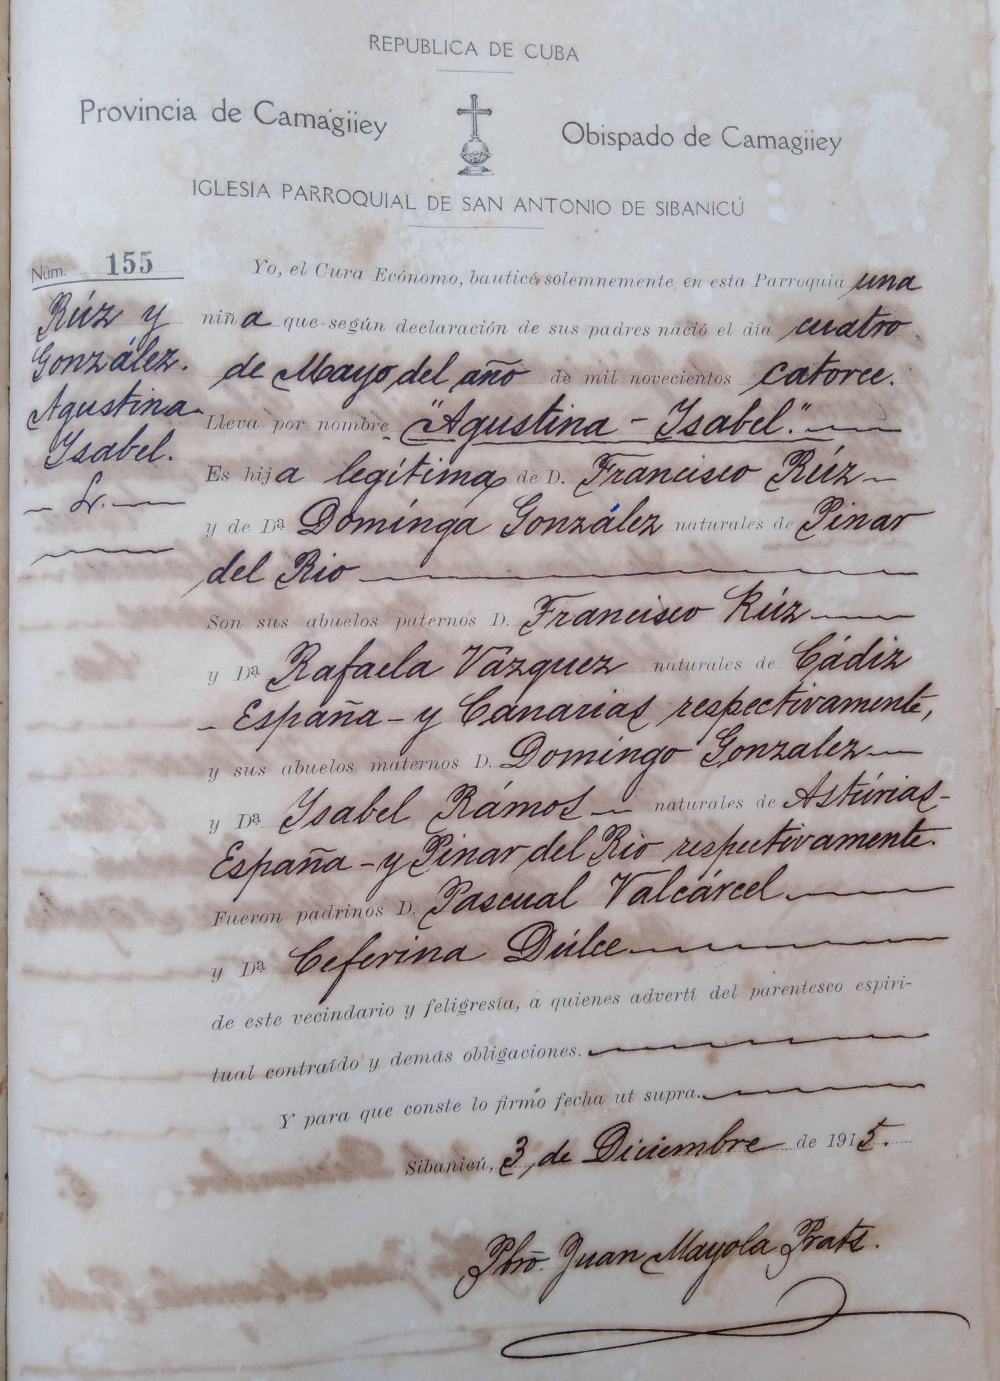 REPUBLICA DE CUBA
Provincia de Camagüey
Obispado de Camagüey
IGLESIA PARROQUIAL DE SAN ANTONIO DE SIBANICÚ
Núm. 155
Rúz y
González.
Agustina
Ysabel.
Yo, el Cura Ecónomo, bauticé solemnemente en esta Parroquia una
niña que según declaración de sus padres nació el día cuatro
de Mayo del año de mil novecientos catorce.
Lleva por nombre "Agustina - Ysabel."
Es hija legítima de D. Francisco Rúz
y de Dª Domínga González naturales de Pinar
del Rio
Son sus abuelos paternos D. Francisco Rúz
y Dª Rafaela Vázquez naturales de Cádiz
- España - y Canarias respectivamente,
y sus abuelos maternos D. Domíngo Gonzalez
y Dª Ysabel Rámos naturales de Astúrias -
España - y Pinar del Rio respectivamente.
Fueron padrinos D. Pascual Valcárcel
y Dª Ceferina Dúlce
de este vecindario y feligresía, á quienes advertí del parentesco espiri-
tual contraído y demás obligaciones.
Y para que conste lo firmo fecha ut supra.
Sibanicú, 3, de Diciembre de 1915.
Pbro. Juan Mayola Prats.